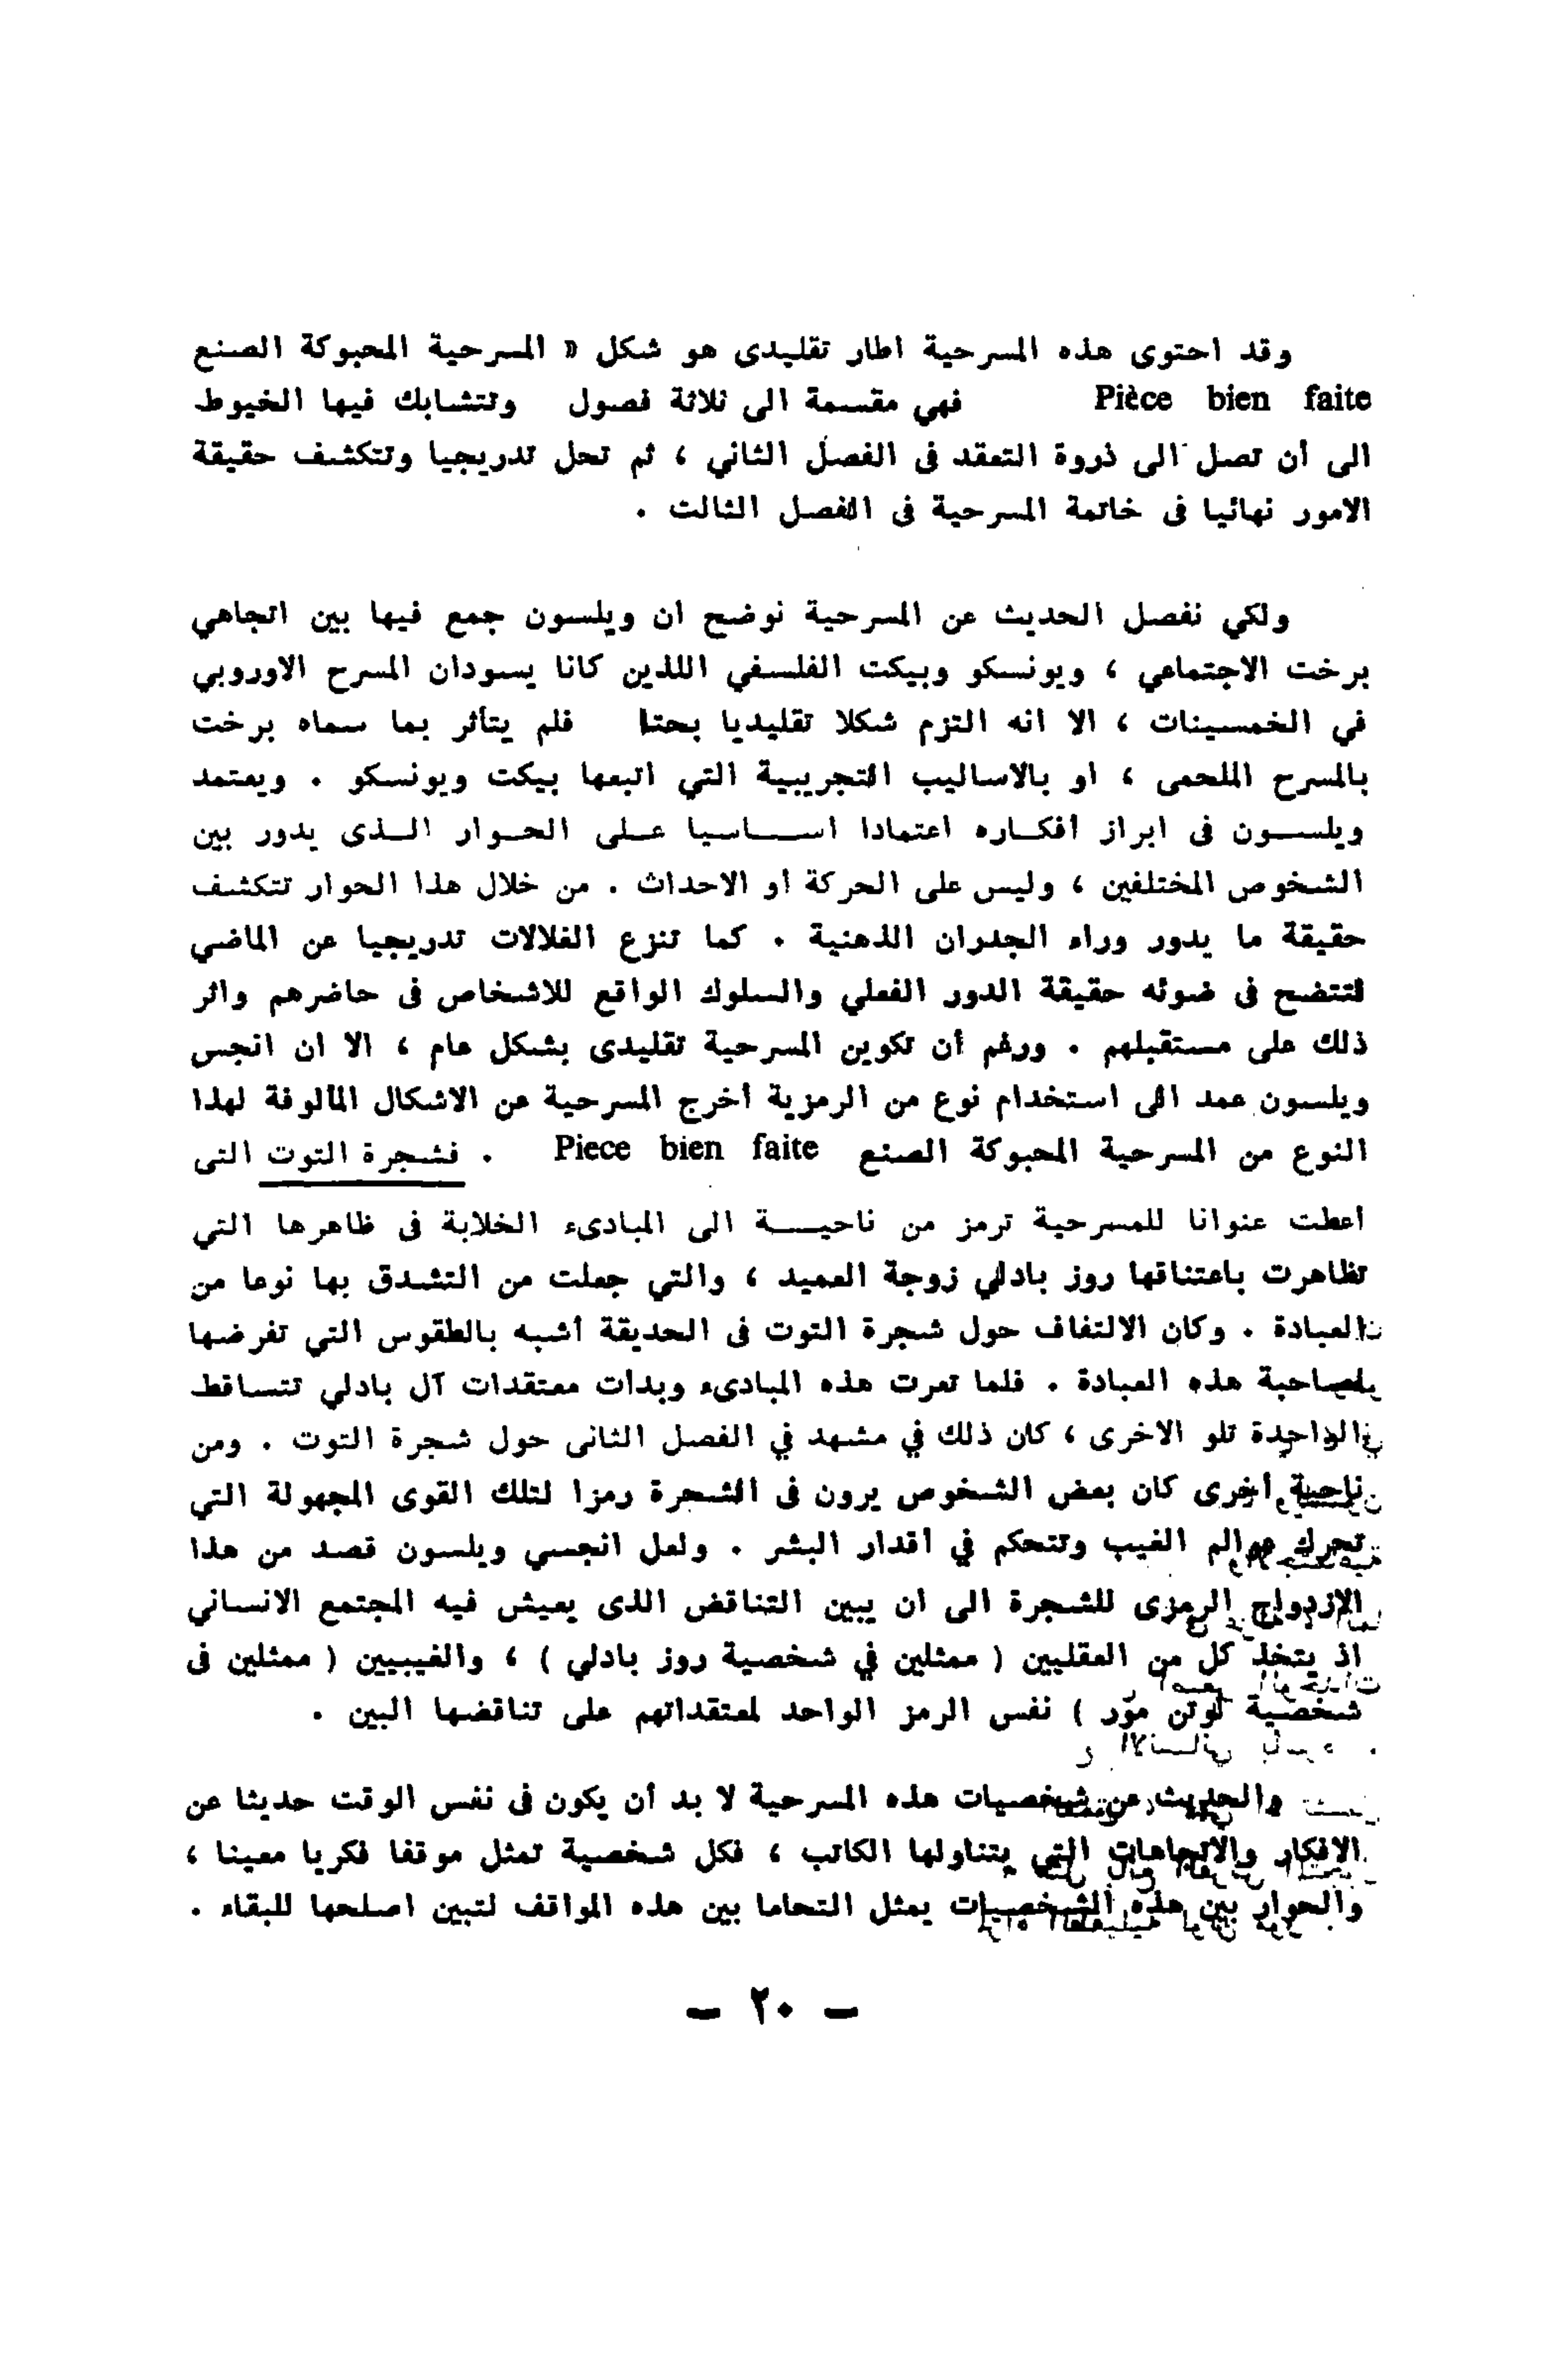 وقد احتوى هذه المسرحية اطار تقليدى هو شكل « المسرحية المحبوكة الصنع
Pièce bien faite فهي مقسمة الى ثلاثة فصول وتتشابك فيها الخيوط
الى أن تصل الى ذروة التعقد فى الفصل الثاني ، ثم تحل تدريجيا وتتكشف حقيقة
الامور نهائيا فى خاتمة المسرحية فى الفصل الثالث .
ولكي نفصل الحديث عن المسرحية نوضح ان ويلسون جمع فيها بين اتجاهي
برخت الاجتماعي ، ويونسكو وبيكت الفلسفي اللذين كانا يسودان المسرح الاوروبي
في الخمسينات ، الا انه التزم شكلا تقليديا بحتا فلم يتأثر بما سماه برخت
بالمسرح الملحمى ، او بالاساليب التجريبية التي اتبعها بيكت ويونسكو . ويعتمد
ويلسون فى ابراز أفكاره اعتمادا اساسيا على الحوار الذى يدور بين
الشخوص المختلفين ، وليس على الحركة أو الاحداث . من خلال هذا الحوار تتكشف
حقيقة ما يدور وراء الجدران الذهنية . كما تنزع الغلالات تدريجيا عن الماضي
لتتضح فى ضوئه حقيقة الدور الفعلي والسلوك الواقع للاشخاص فى حاضرهم واثر
ذلك على مستقبلهم . ورغم أن تكوين المسرحية تقليدى بشكل عام ، الا ان انجس
ويلسون عمد الى استخدام نوع من الرمزية أخرج المسرحية عن الاشكال المألوفة لهذا
النوع من المسرحية المحبوكة الصنع Piece bien faite . فشجرة التوت التى
أعطت عنوانا للمسرحية ترمز من ناحية الى المبادىء الخلابة فى ظاهرها التي
تظاهرت باعتناقها روز بادلي زوجة العميد ، والتي جعلت من التشدق بها نوعا من
العبادة . وكان الالتفاف حول شجرة التوت فى الحديقة أشبه بالطقوس التي تفرضها
صاحبة هذه العبادة . فلما تعرت هذه المبادىء وبدات معتقدات آل بادلي تتساقط
الواحدة تلو الاخرى ، كان ذلك في مشهد في الفصل الثانى حول شجرة التوت . ومن
ناحية أخرى كان بعض الشخوص يرون فى الشجرة رمزا لتلك القوى المجهولة التي
تحرك عوالم الغيب وتتحكم في أقدار البشر . ولعل انجسي ويلسون قصد من هذا
الازدواج الرمزى للشجرة الى ان يبين التناقض الذى يعيش فيه المجتمع الانساني
اذ يتخذ كل من العقليين ( ممثلين في شخصية روز بادلي ) ، والغيبيين ( ممثلين فى
شخصية لوتن مور ) نفس الرمز الواحد لمعتقداتهم على تناقضها البين .
والحديث عن شخصيات هذه المسرحية لا بد أن يكون فى نفس الوقت حديثا عن
الافكار والاتجاهات التي يتناولها الكاتب ، فكل شخصية تمثل موقفا فكريا معينا ،
والحوار بين هذه الشخصيات يمثل التحاما بين هذه المواقف لتبين اصلحها للبقاء .
— ٢٠ —